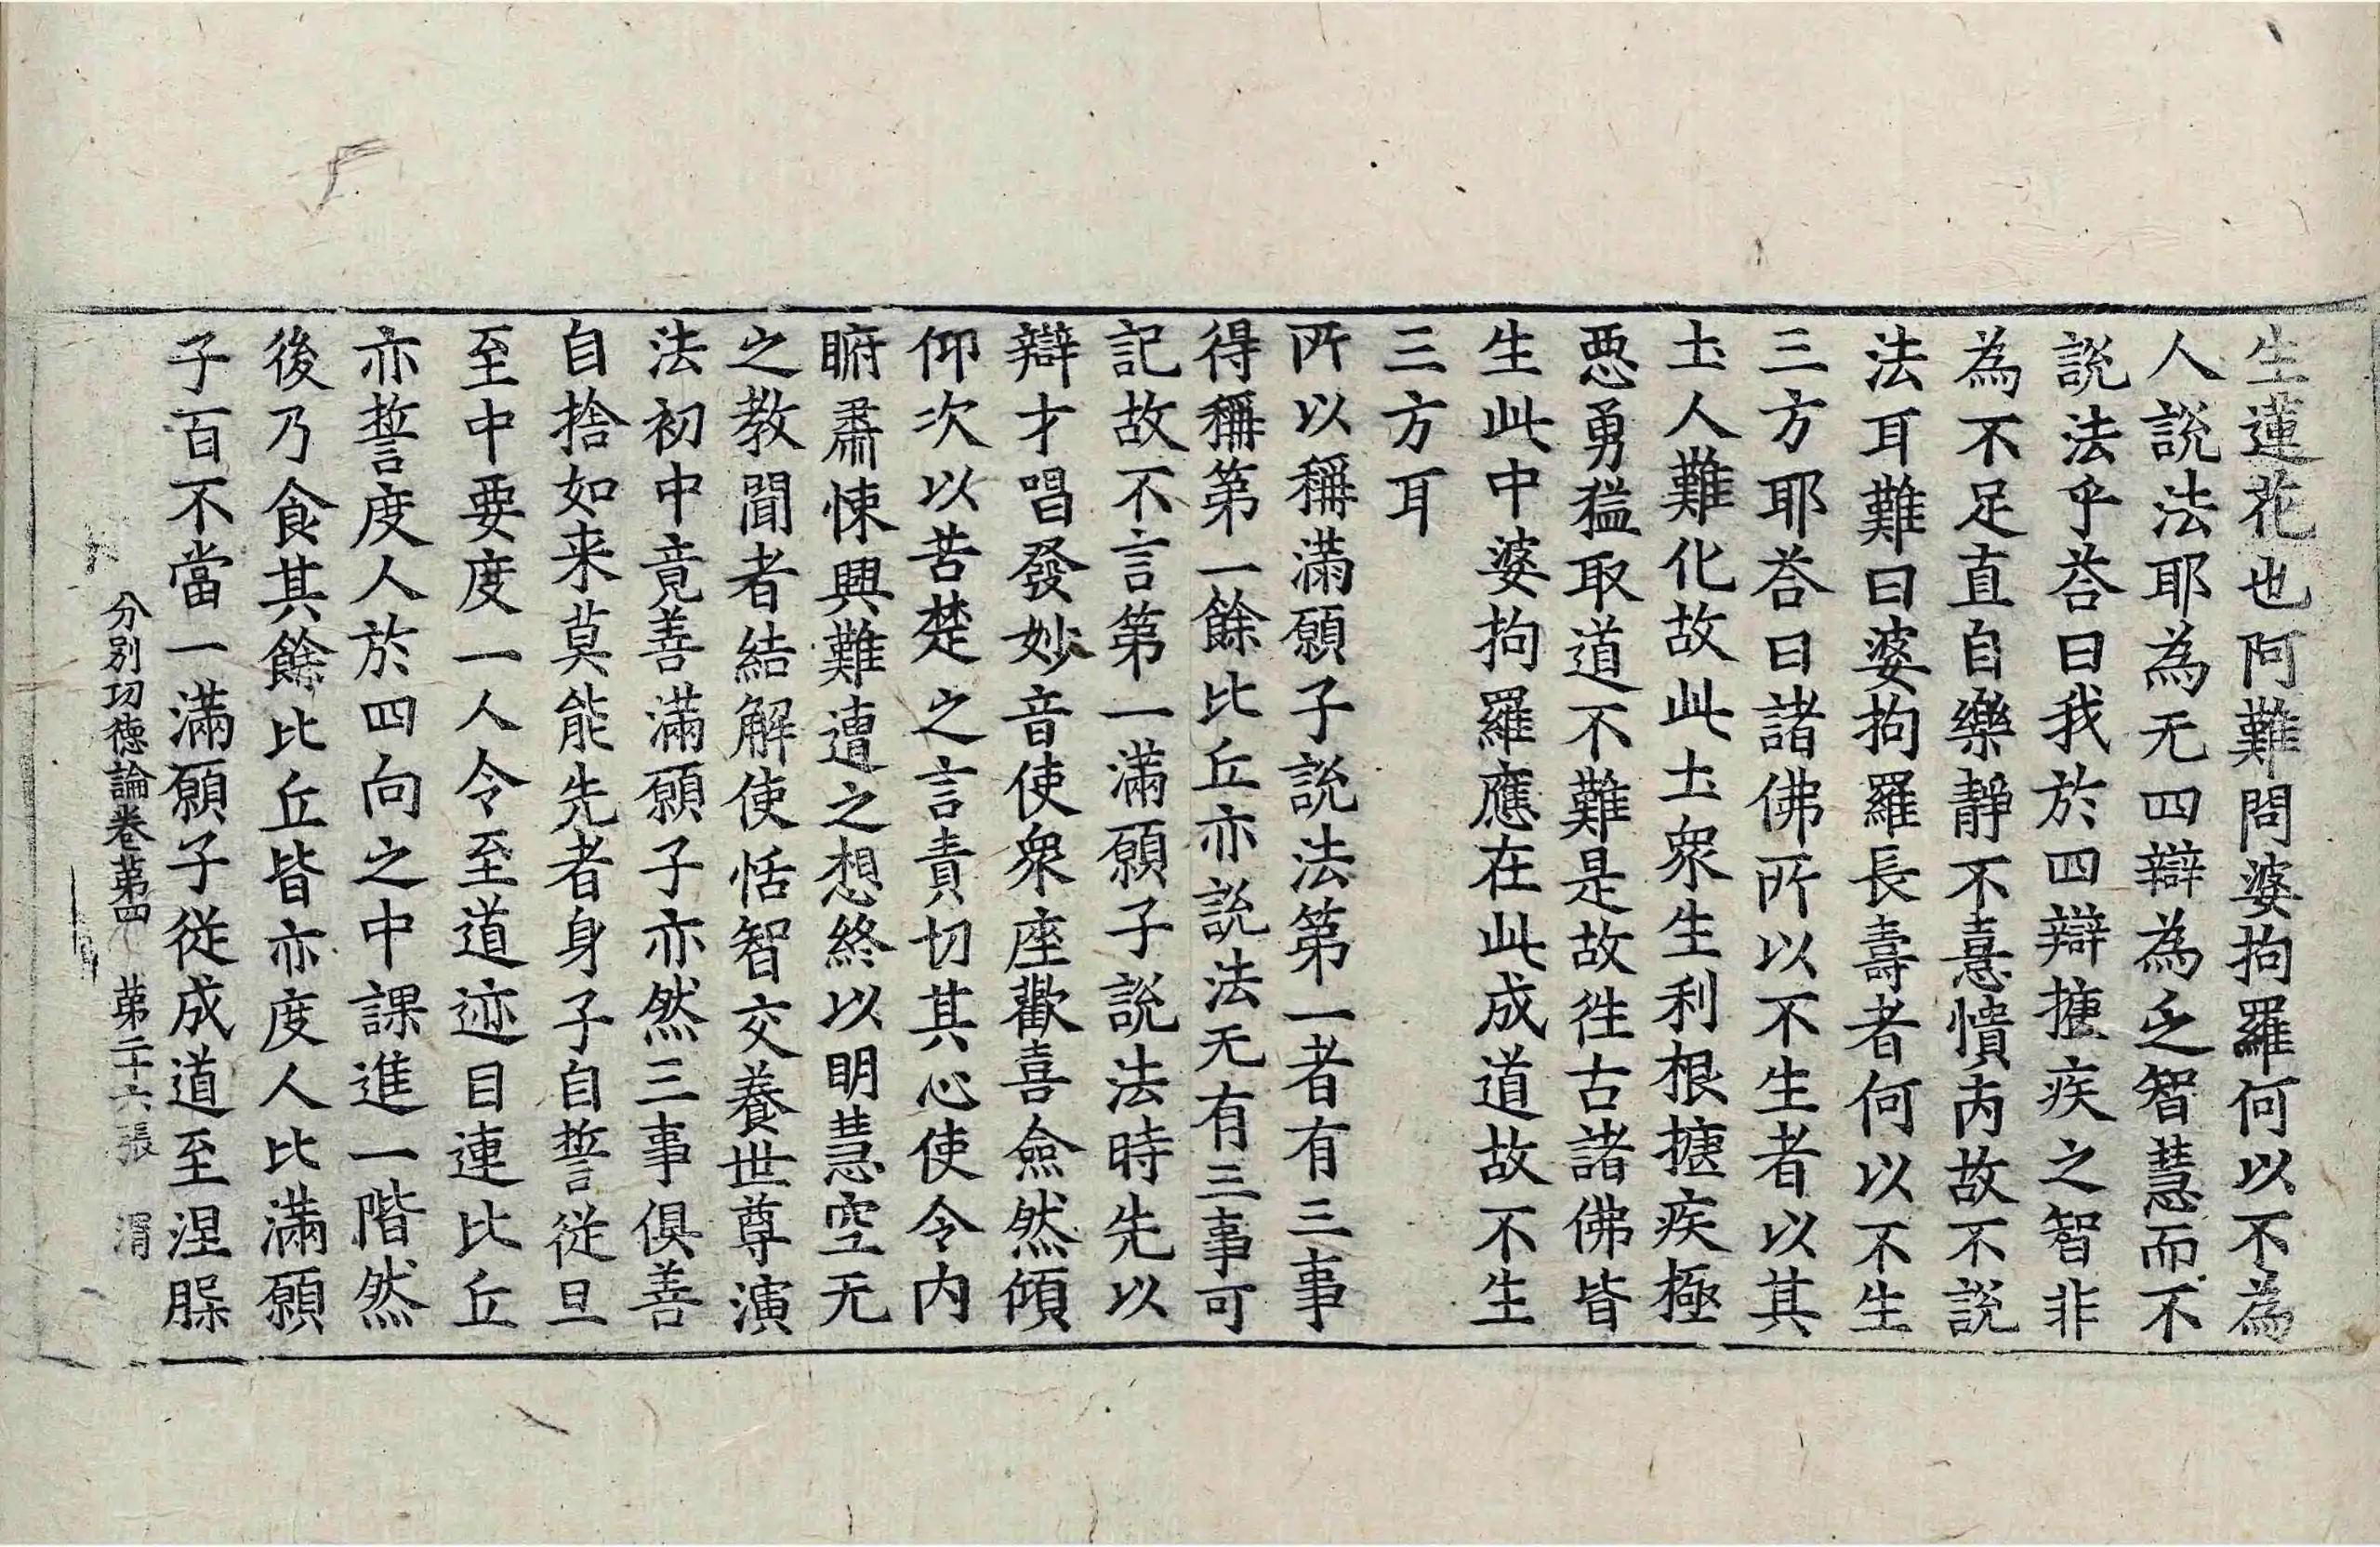 生蓮花也阿難問婆拘羅何以不為
人說法耶為无四辯為乏智慧而不
說法乎荅曰我於四辯揵疾之智非
為不足直自樂靜不憙憒丙故不說
法耳難曰婆拘羅長壽者何以不生
三方耶荅曰諸佛所以不生者以其
土人難化故此土衆生利根揵疾極
惡勇猛取道不難是故徃古諸佛皆
生此中婆拘羅應在此成道故不生
三方耳
所以稱滿願子說法第一者有三事
得稱第一餘比丘亦說法无有三事可
記故不言第一滿願子說法時先以
辯才唱發妙音使衆座歡喜僉然傾
仰次以苦楚之言責切其心使令内
肅悚興難遭之想終以明慧空无
之教聞者結解使恬智交養世尊演
法初中竟善滿願子亦然三事俱善
自捨如来莫能先者身子自誓從旦
至中要度一人令至道迹目連比丘
亦誓度人於四向之中課進一階然
後乃食其餘比丘皆亦度人比滿願
子百不當一滿願子從成道至涅
分別功德論卷苐四 苐二十六張 渭